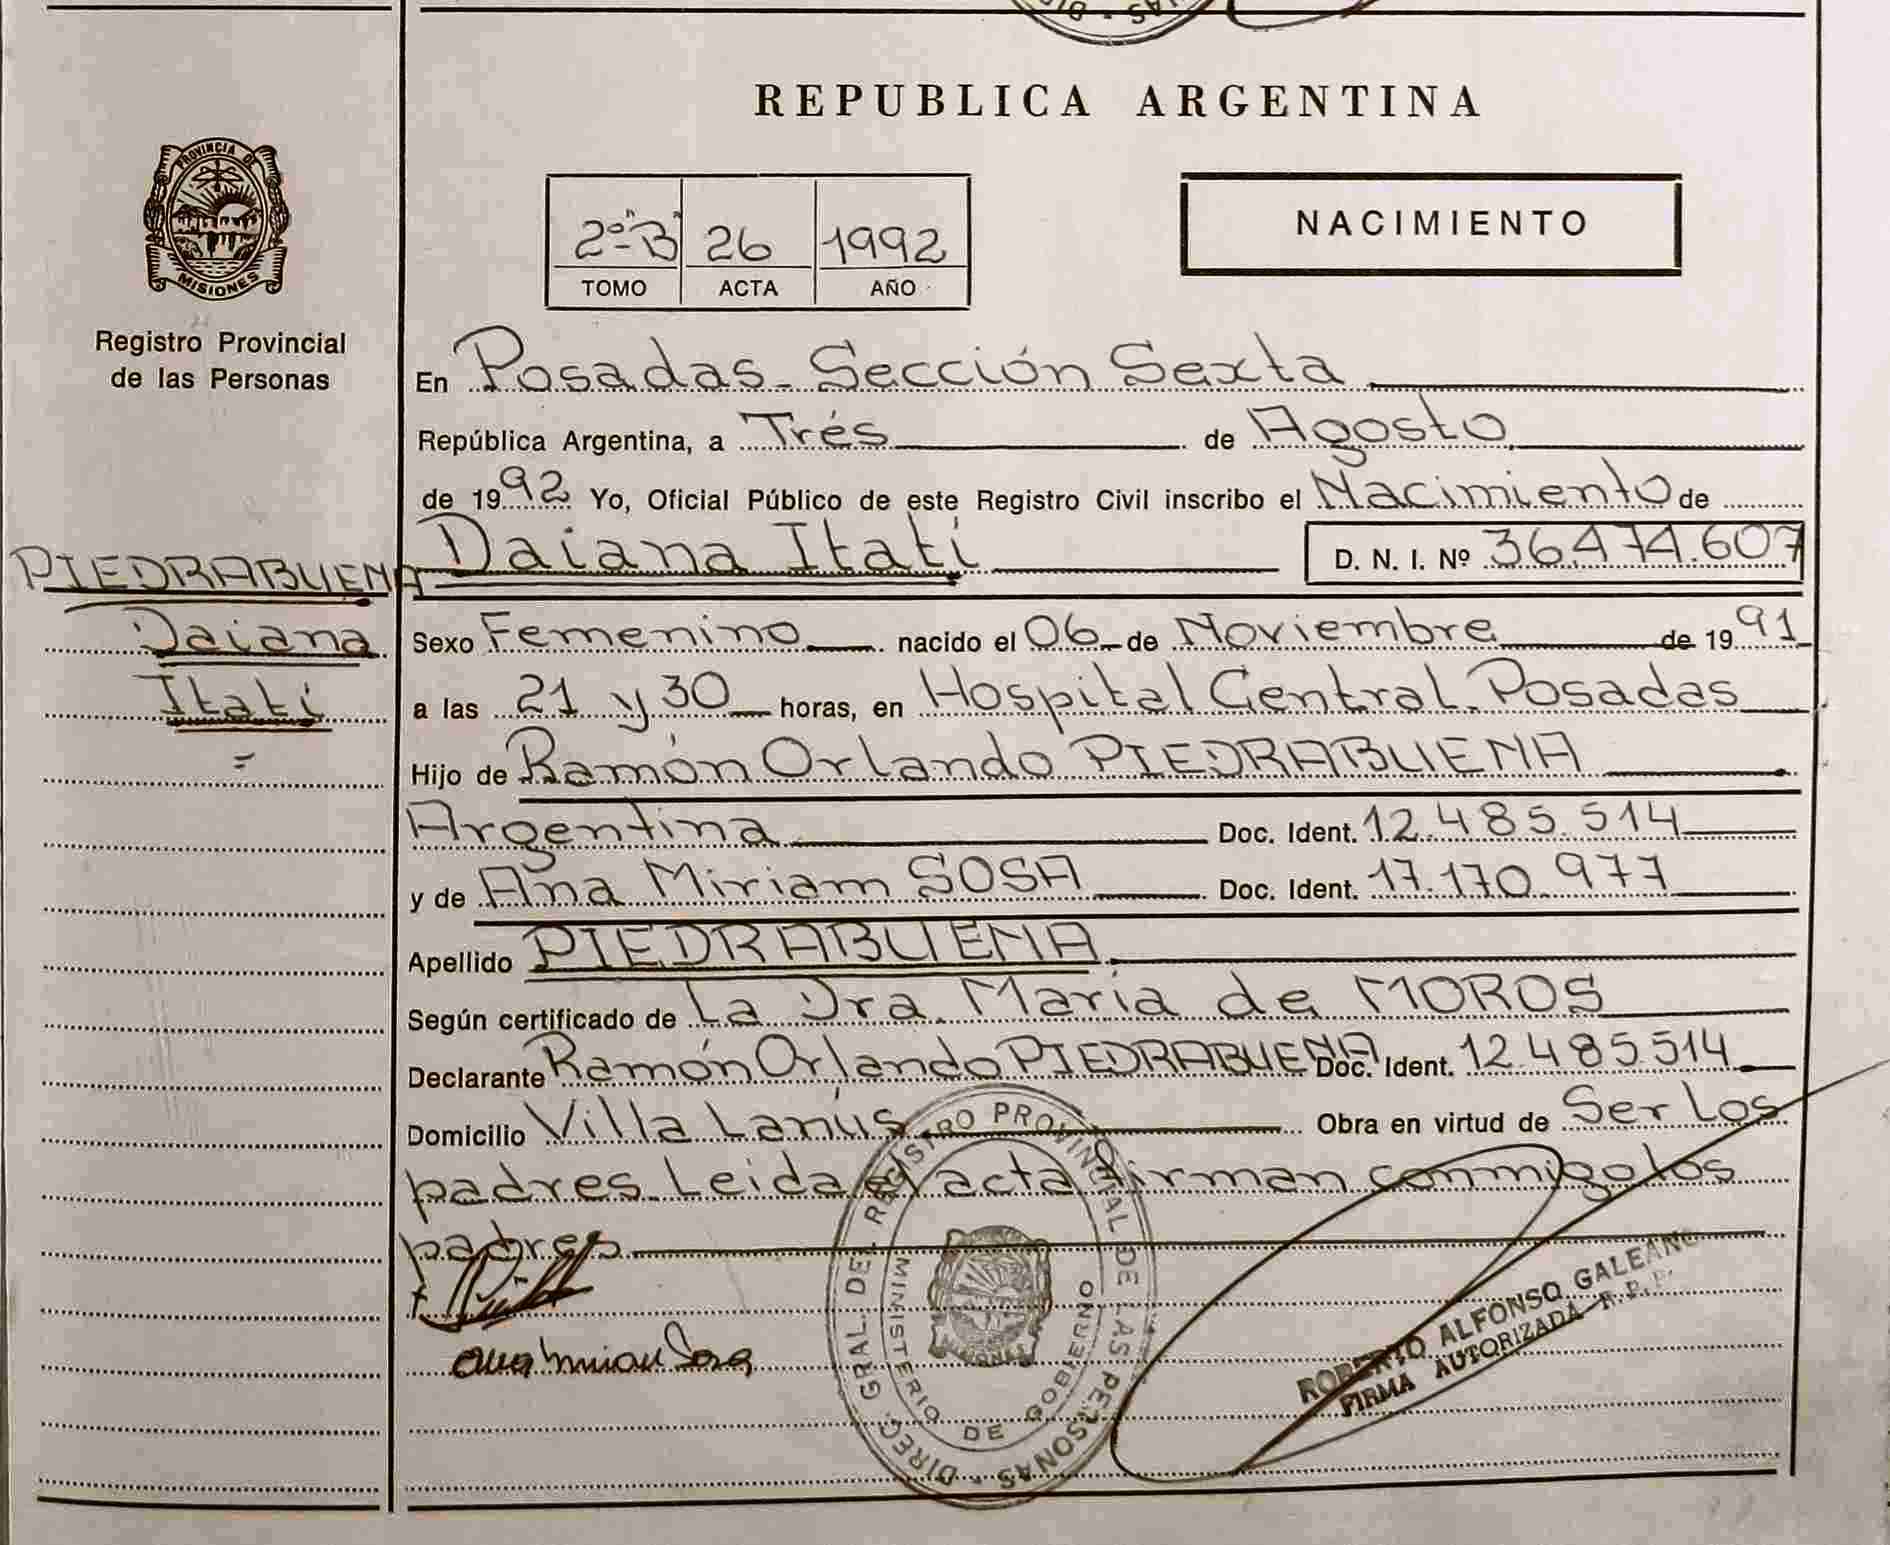 REPUBLICA ARGENTINA
PROVINCIA DE
MISIONES
Registro Provincial
de las Personas
2º "B" 26 1992
TOMO ACTA AÑO
NACIMIENTO
En Posadas - Sección Sexta
República Argentina, a Trés de Agosto
de 1992 Yo, Oficial Público de este Registro Civil inscribo el Nacimiento de
Daiana Itatí D. N. I. Nº 36.474.607
PIEDRABUENA
Daiana
Itatí
Sexo Femenino nacido el 06 de Noviembre de 1991
a las 21 y 30 horas, en Hospital Central. Posadas
Hijo de Ramón Orlando PIEDRABUENA
Argentina Doc. Ident. 12.485.514
y de Ana Miriam SOSA Doc. Ident. 17.170.977
Apellido PIEDRABUENA
Según certificado de La Dra. María de MOROS
Declarante Ramón Orlando PIEDRABUENA Doc. Ident. 12.485.514
Domicilio Villa Lanús Obra en virtud de Ser los
padres. Leida el acta firman conmigo los
padres
DIREC. GRAL. DEL REGISTRO PROVINCIAL DE LAS PERSONAS
MINISTERIO DE GOBIERNO
ROBERTO ALFONSO GALEANO
FIRMA AUTORIZADA R. P. P.